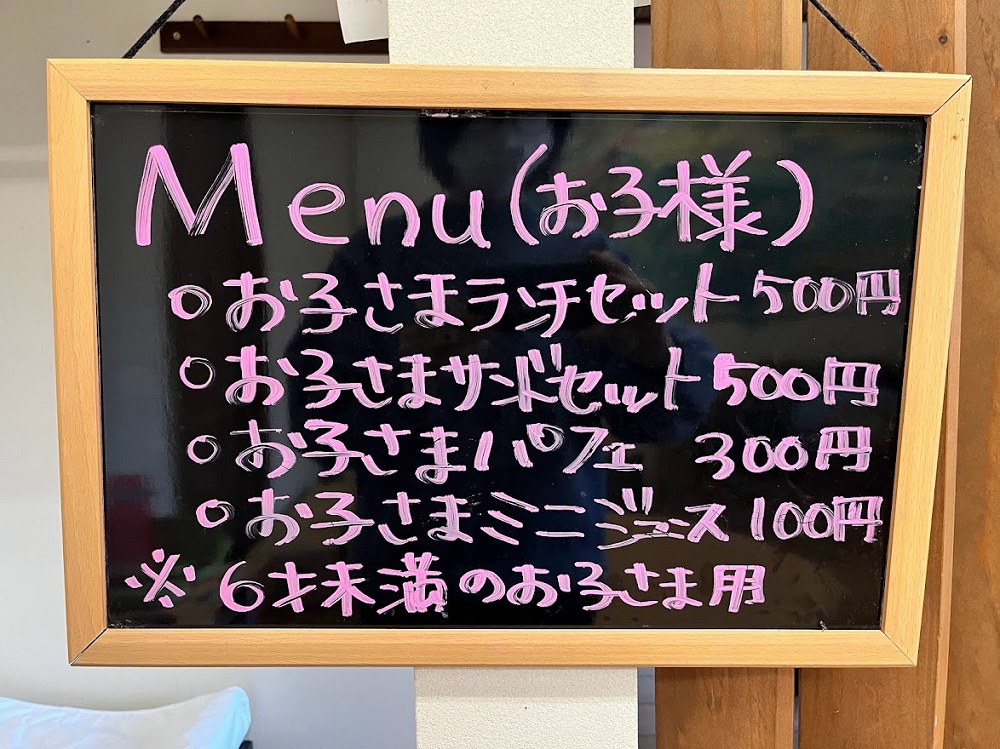 Menu(お子様)
○お子さまランチセット 500円
○お子さまサンドセット 500円
○お子さまパフェ 300円
○お子さまミニジュース 100円
※6才未満のお子さま用